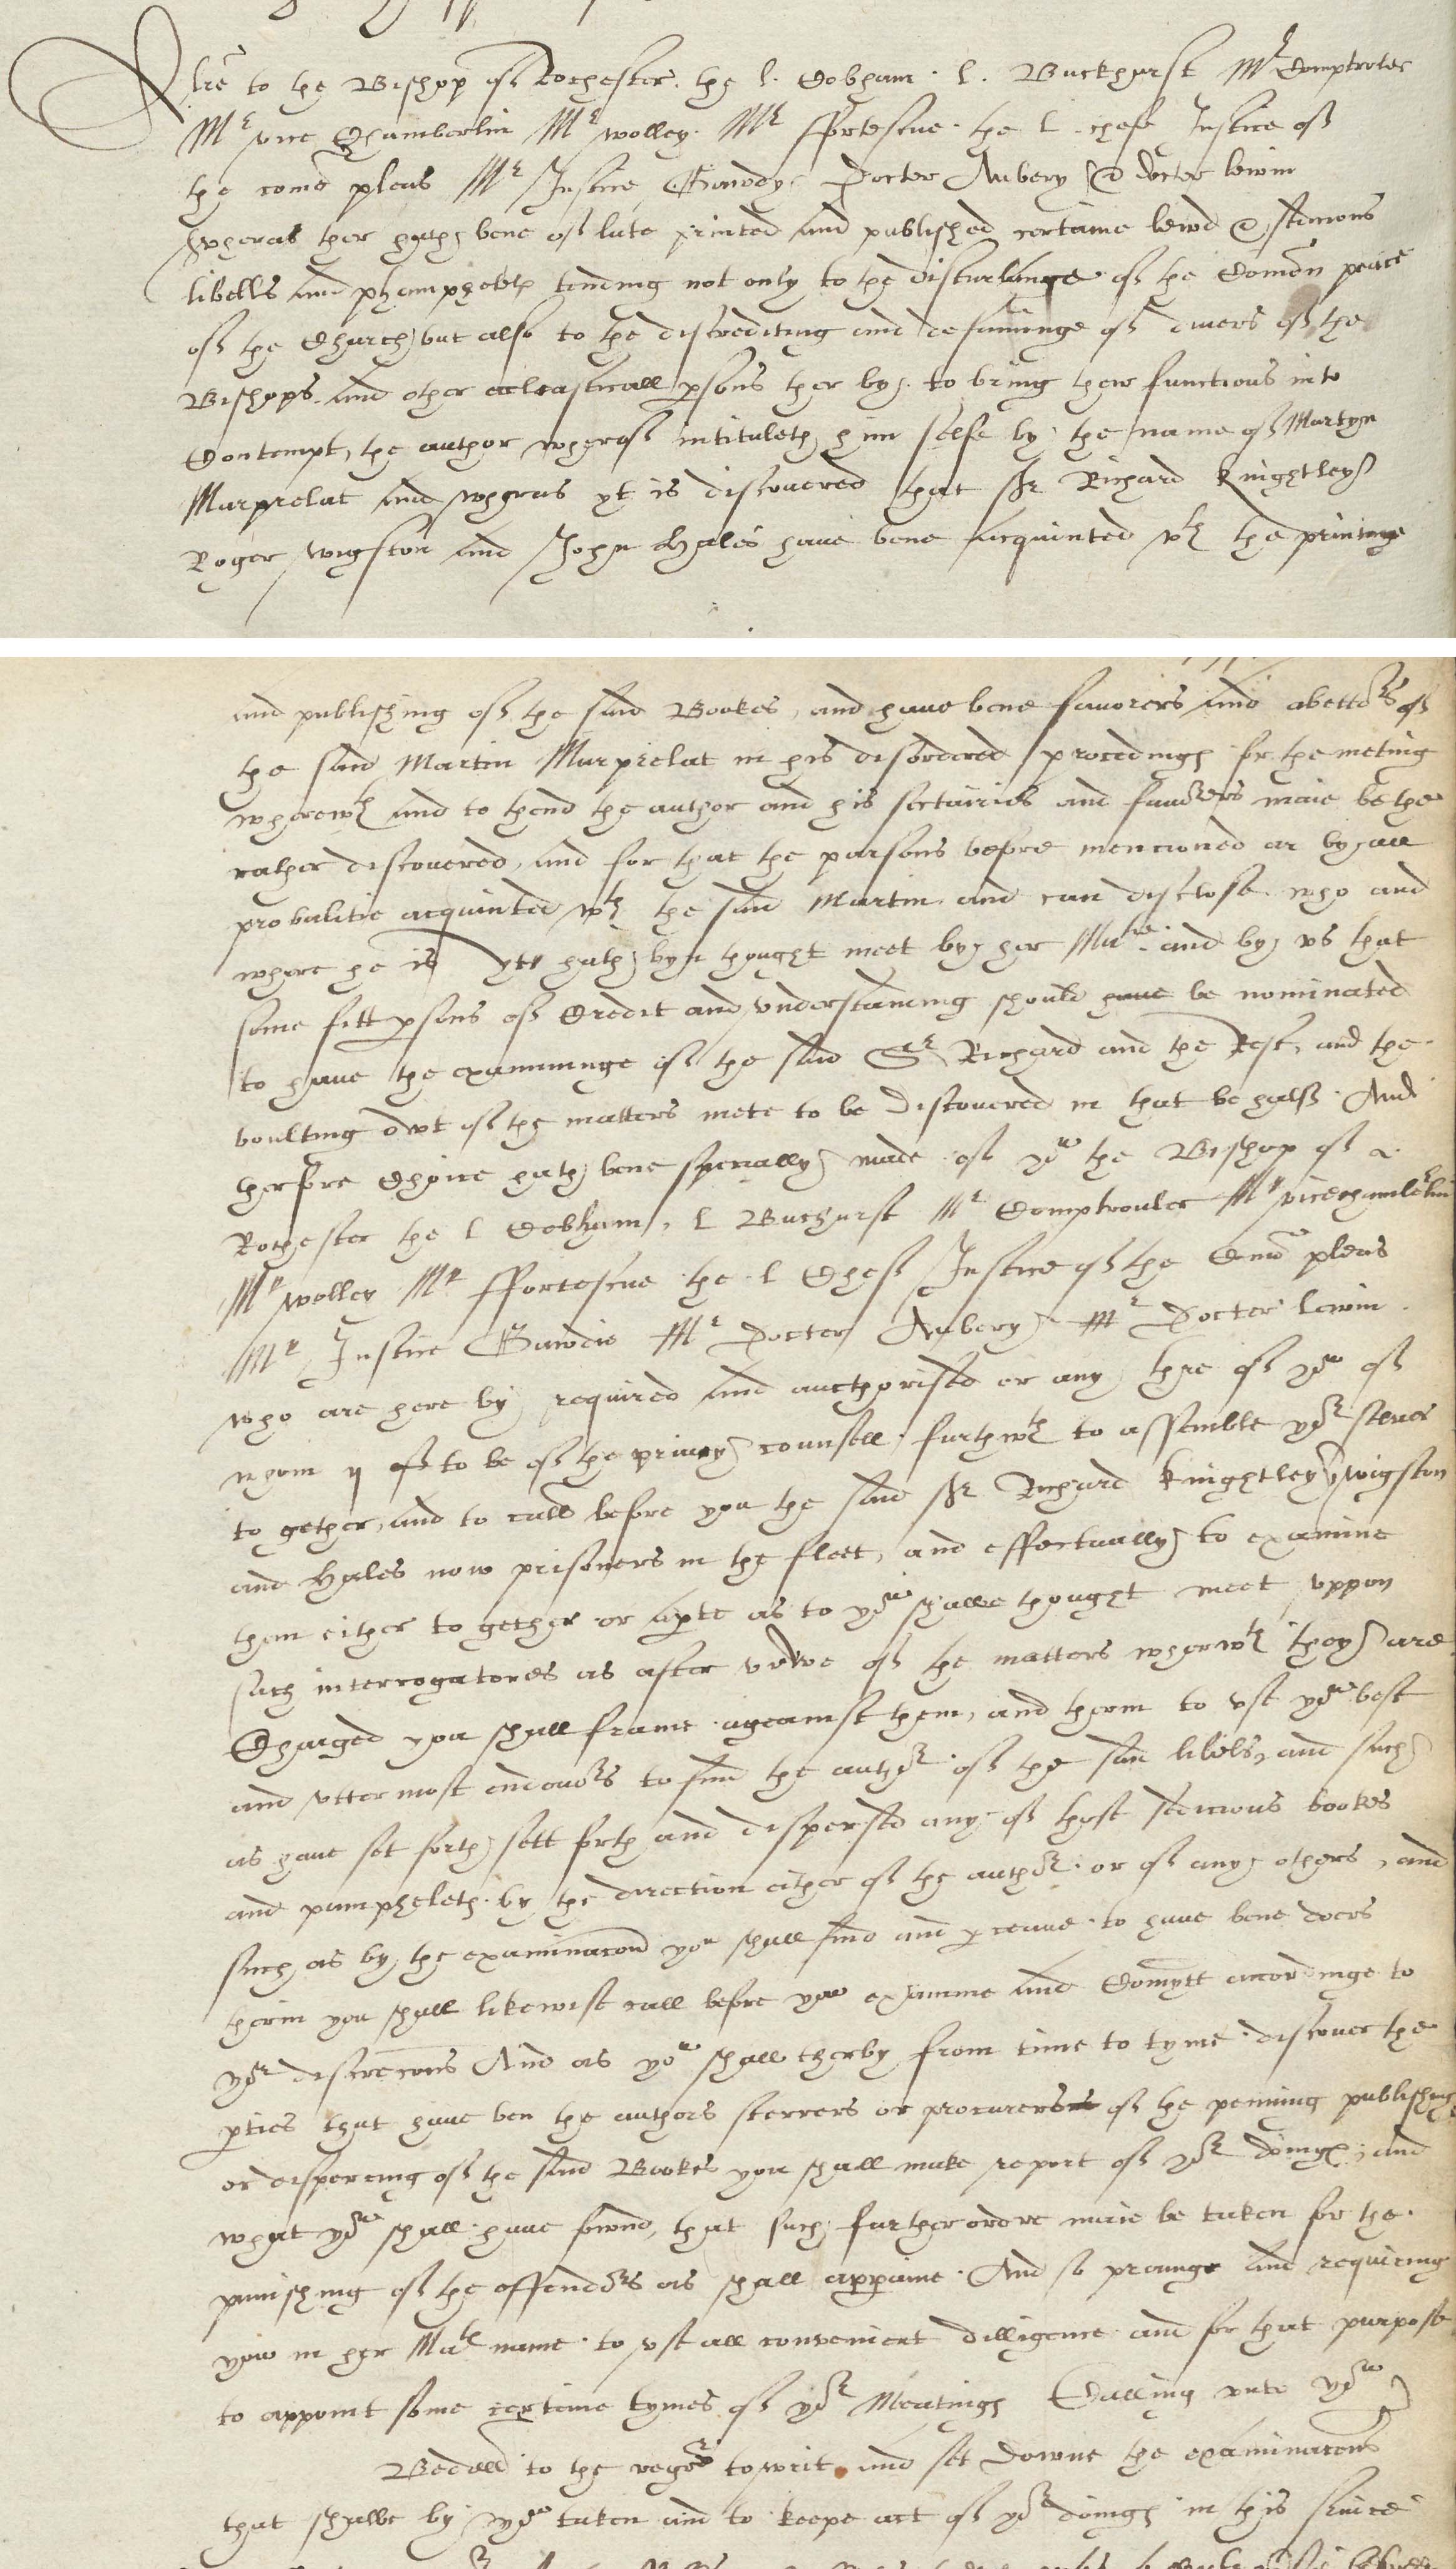 A lre to the Bishop of Rochester. the l. Cobham. l. Buckhurst Mr Comptroler
Mr vice Chamberlin Mr Wolley. Mr ffortescue. the l. chefe Justice of
the come pleas Mr Justice Gawdy. Docter Awbery & docter lewin
Wheras ther hath bene of late printed and published certaine lewd & sedicious
libells and phamphelets tending not only to the disturbange of the Comon peace
of the Church, but also to the discrediting and defaminge of divers of the
Bishops. And other eclesasticall psons ther by. to bring ther functions into
Contempt, the author wherof intituleth him selfe by the name of Martyn
Marprelat and wheras yt is discovered that Sr Richard Knightley
Roger Wigston and John Hales have bene acquinted wth the printinge
and publishing of the said Bookes, and have bene favorers and abettors of
the said Martin Marprelat in his disordered procedings for the meting
wherewth and to thend the author and his sectairies and favorers maie be the
rather discovered, and for that the parsons before mencioned ar by all
probalitie acquinted wth the said Martin and can disclose. who and
where he is yt hath byn thought meet by her Matie and by us that
some fitt psons of Credit and understanding should have be nominated
to have the examininge of the said Sr Richard and the Rest, and the
boulting owt of the matters mete to be Discovered in that behalf. And
therfore Choice hath bene specially made of you the Bishop of
Rochester the l Cobham, l Buchurst Mr Comptrouler Mr vicechamberlin
Mr Wolley Mr ffortescue the l Chef Justice of the Comon pleas
Mr Justice Gawdie Mr Docter Awbery Mr Docter lewin.
who are here by required and aucthorised or any thre of you of
whom ij of to be of the privey counsell furthwth to assemble yor selves
to gether, and to call before you the said Sr Richard Knightley Wigston
and Hales now prisoners in the fleet, and effectually to examine
them either to gether or aparte as to you shalbe thought meet uppon
such interrogatores as after vewe of the matters wherwth they are
Charged you shall frame ageainst them, and therin to use your best
and uttermost endeavors to find the author of the said libels, and such
as have set forth sett forth and dispersed any of those sedicious bookes
and pamphelets by the direction either of the author or of any others, and
such as by the examinacond you shall find and pceave to have bene doers
therin you shall likewise call before you examine and Comytt accordinge to
yor discrecions And as you shall therby from time to tyme discover the
pties that have ben the authors sterrers or procurers of the penning publishing
or dispercing of the said Bookes you shall make report of yor doings, and
what you shall have fownd, that such further ordre maie be taken for the
punishing of the offendors as shall appertaine. And so praing and requiring
you in her Mats name to use all convenient dilligence and for that purpose
to appoint some certaine tymes of yor Meatings Calling unto you
Bedell to the regor to writ and set downe the examinacons
that shalbe by you taken and to keepe act of yor doings in this service